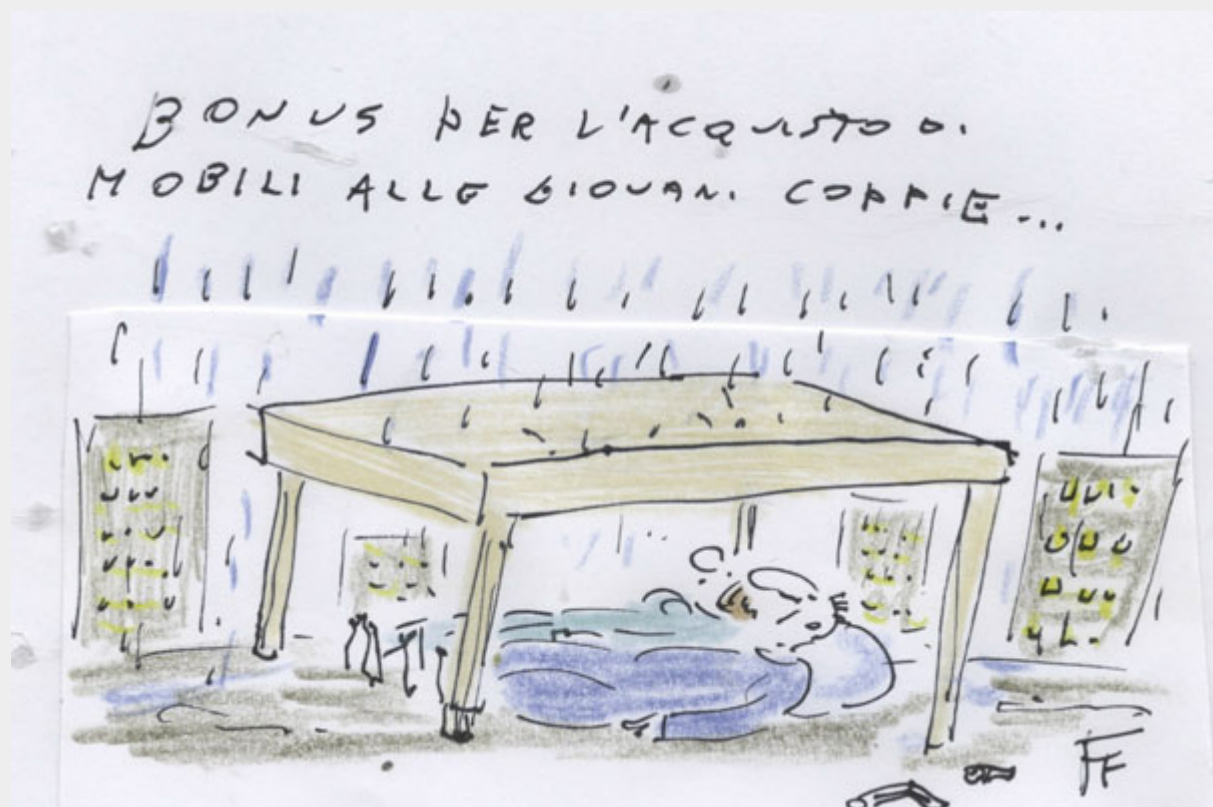 BONUS PER L'ACQUISTO DI
MOBILI ALLE GIOVANI COPPIE...
FF